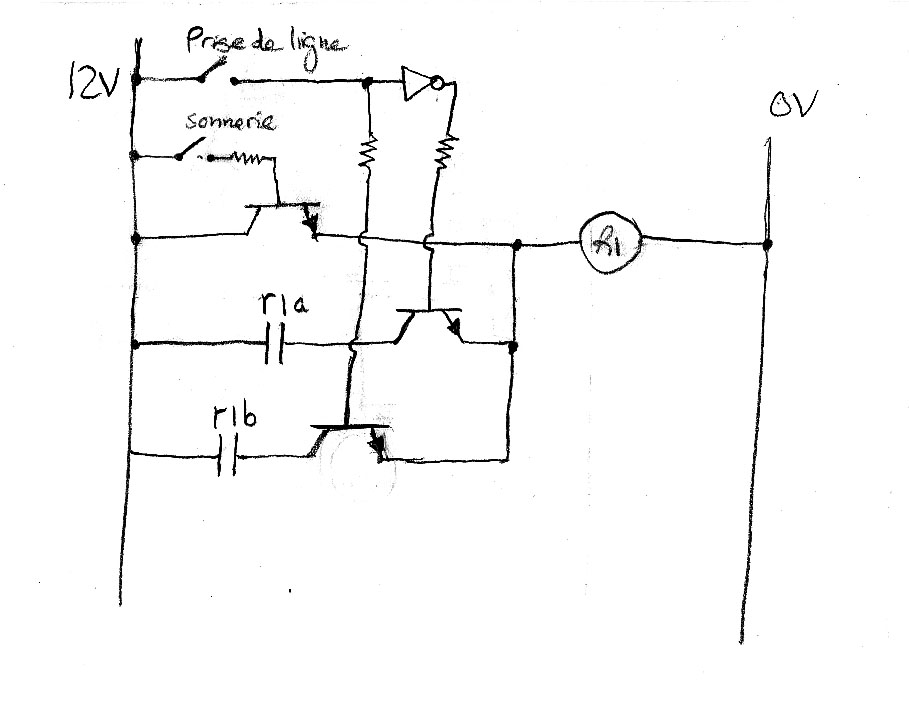 Prise de ligne
12V
0V
sonnerie
R1
r1a
r1b